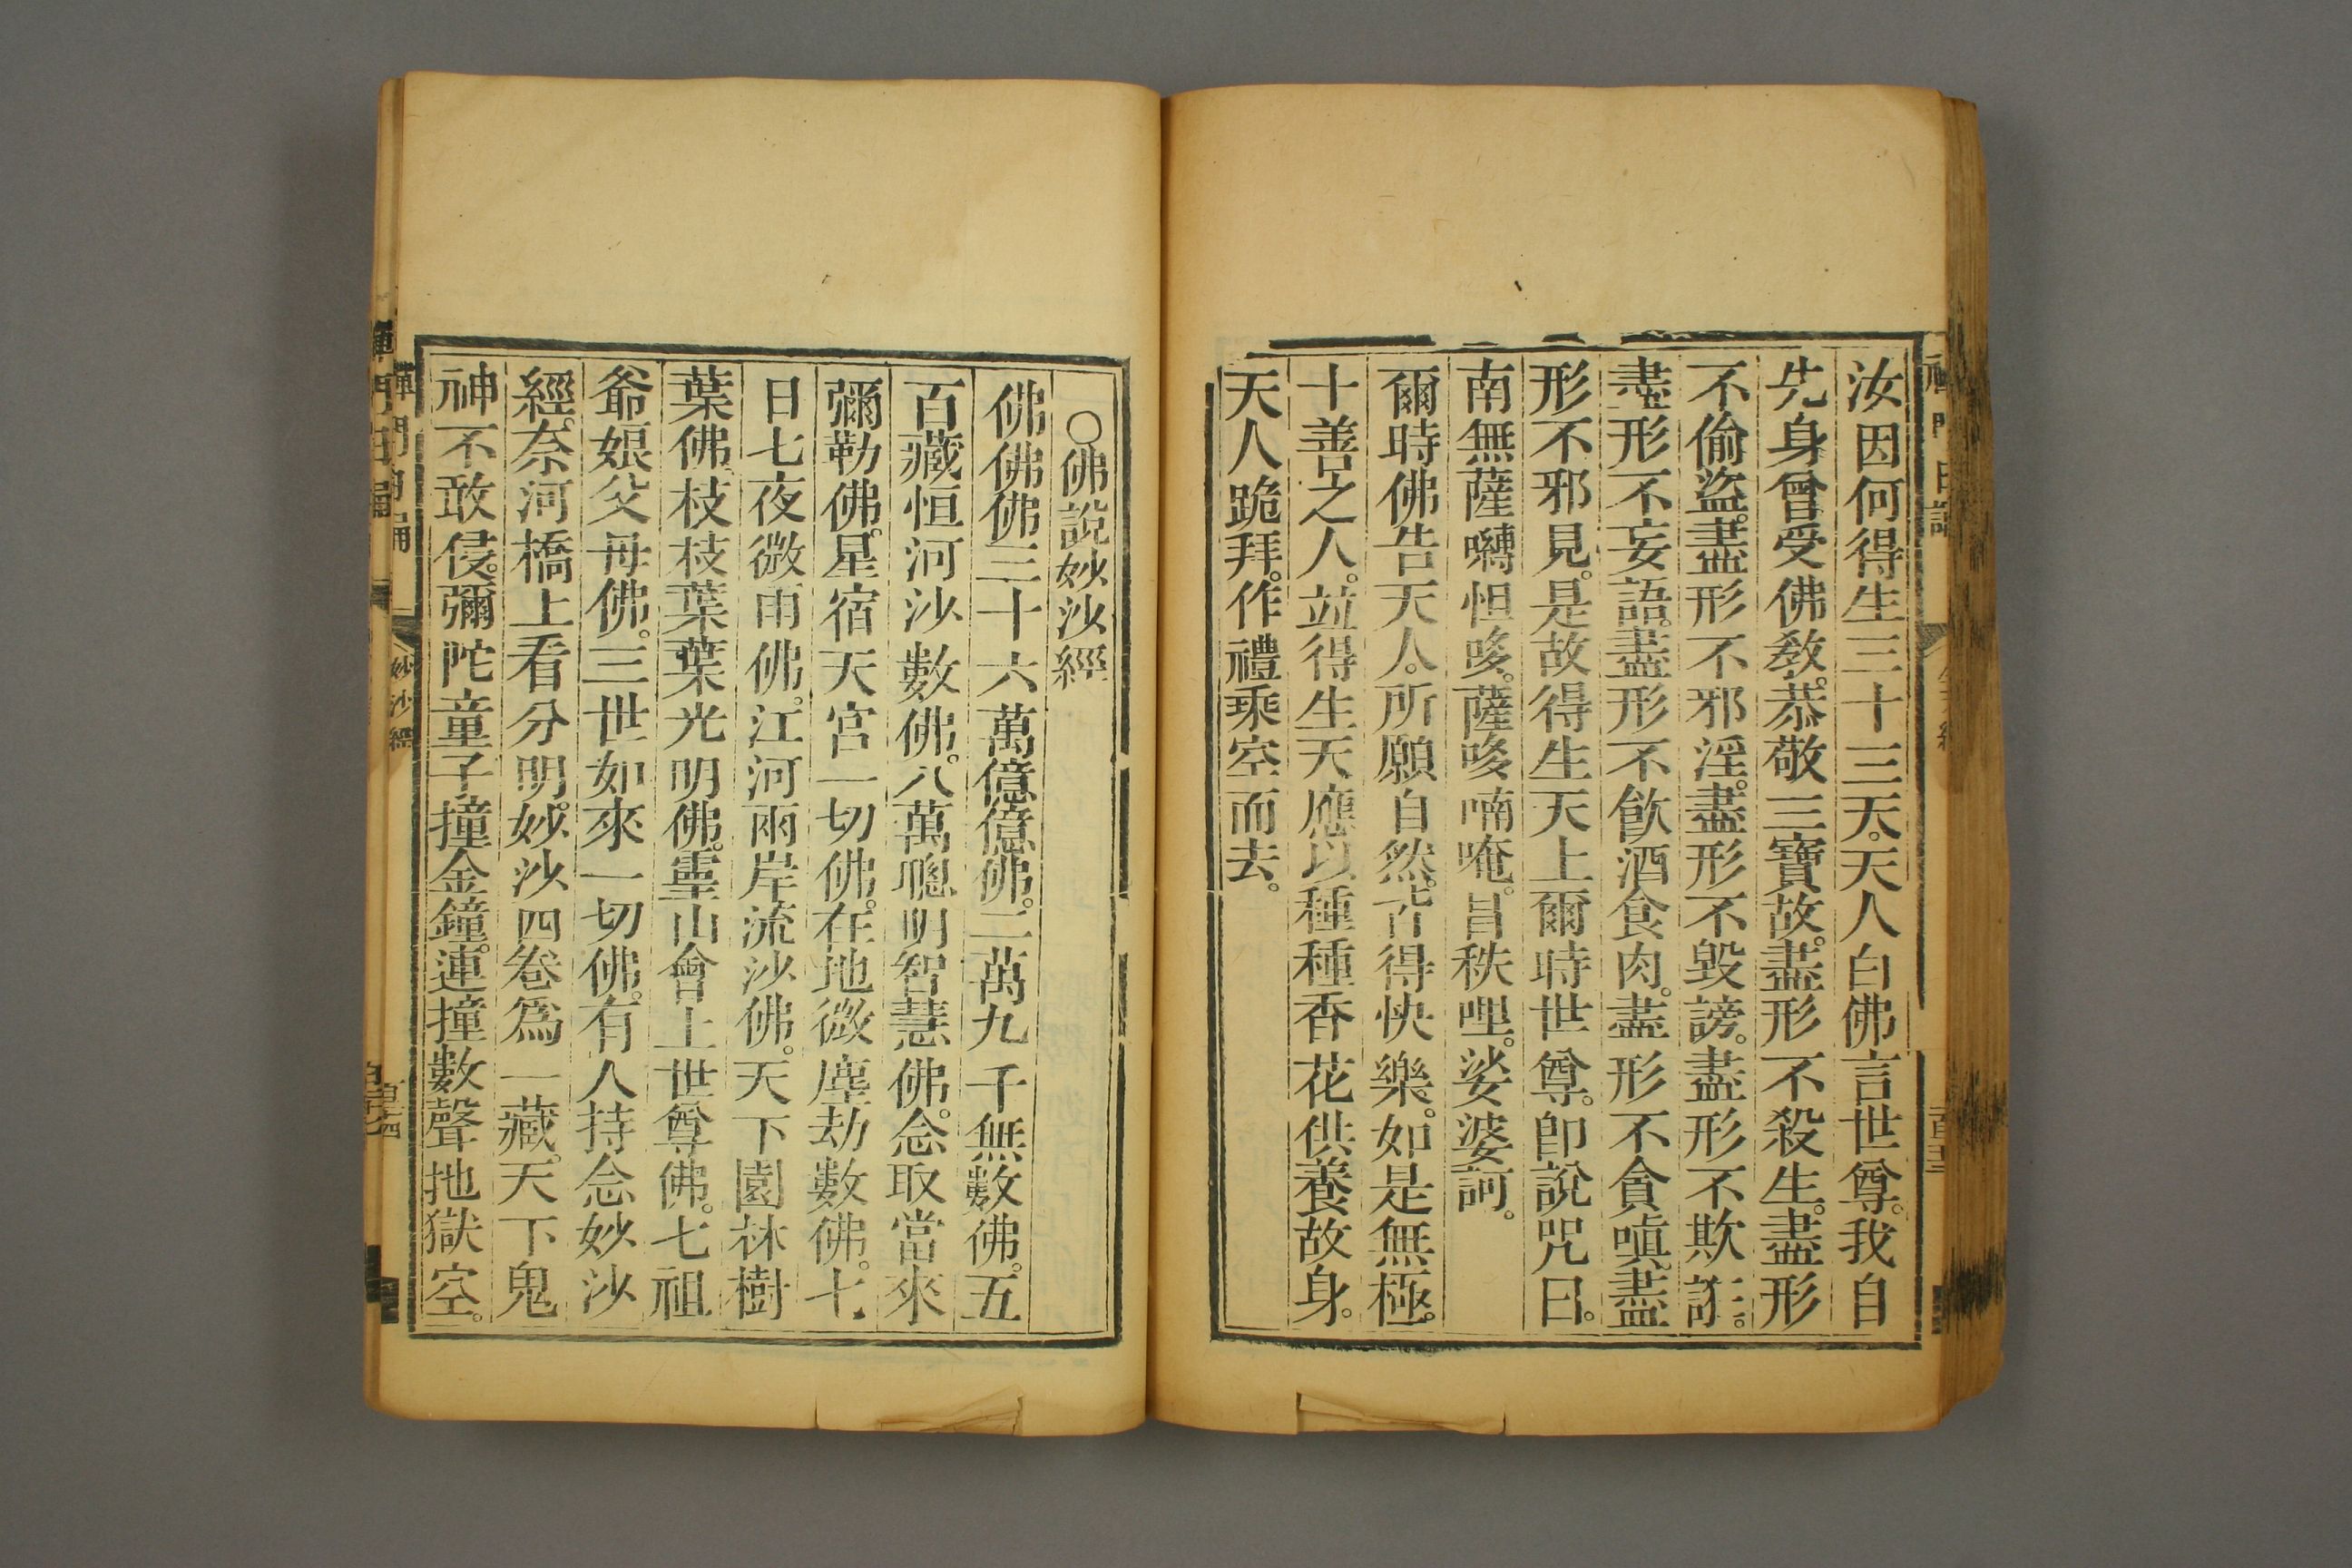 汝因何得生三十三天。天人白佛言世尊。我自
先身曾受佛教。恭敬三寶故。盡形不殺生。盡形
不偷盜。盡形不邪淫。盡形不毀謗。盡形不欺誑。
盡形不妄語。盡形不飲酒食肉。盡形不貪嗔。盡
形不邪見。是故得生天上爾時世尊。即說咒曰。
南無薩嚩怛哆。薩哆喃唵。昌秩哩。娑婆訶。
爾時佛告天人。所願自然。皆得快樂。如是無極。
十善之人。並得生天應以種種香花供養故身。
天人跪拜。作禮乘空而去。
○佛說妙沙經
佛佛佛三十六萬億億佛。二萬九千無數佛。五
百藏恒河沙數佛。八萬聰明智慧佛。念取當來
彌勒佛。星宿天宮一切佛。在地微塵劫數佛。七
日七夜微雨佛。江河兩岸流沙佛。天下園林樹
葉佛。枝枝葉葉光明佛。靈山會上世尊佛。七祖
爺娘父母佛。三世如來一切佛。有人持念妙沙
經。奈河橋上看分明。妙沙四卷為一藏。天下鬼
神不敢侵。彌陀童子撞金鐘。連撞數聲地獄空。
禪門日誦
妙沙經